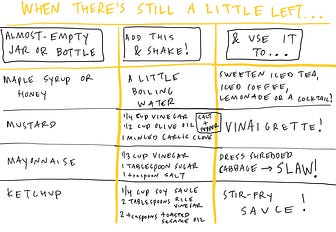 WHEN THERE'S STILL A LITTLE LEFT...
ALMOST-EMPTY
JAR OR BOTTLE
ADD THIS
& SHAKE!
& USE IT
TO...
MAPLE SYRUP OR
HONEY
A LITTLE
BOILING
WATER
SWEETEN ICED TEA,
ICED COFFEE,
LEMONADE OR A COCKTAIL!
MUSTARD
1/4 CUP VINEGAR
1/2 CUP OLIVE OIL
1 MINCED GARLIC CLOVE
SALT
+
PEPPER
VINAIGRETTE!
MAYONNAISE
1/3 CUP VINEGAR
1 TABLESPOON SUGAR
1 TEASPOON SALT
DRESS SHREDDED
CABBAGE → SLAW!
KETCHUP
1/4 CUP SOY SAUCE
2 TABLESPOONS RICE
VINEGAR
2 TEASPOONS TOASTED
SESAME OIL
STIR-FRY
SAUCE!